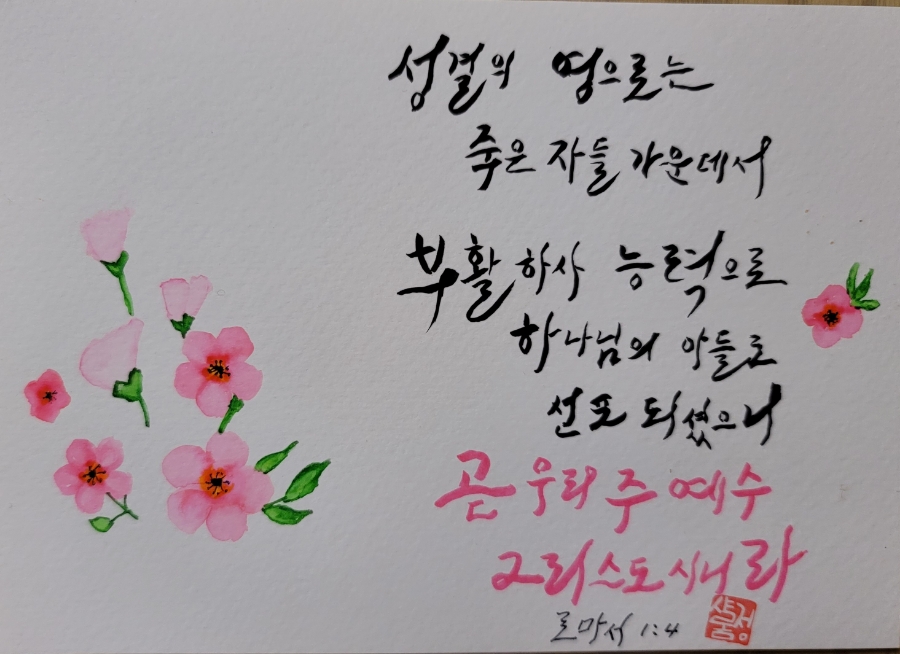 성결의 영으로는
죽은 자들 가운데서
부활하사 능력으로
하나님의 아들로
선포 되셨으니
곧 우리 주 예수
그리스도시니라
로마서 1:4